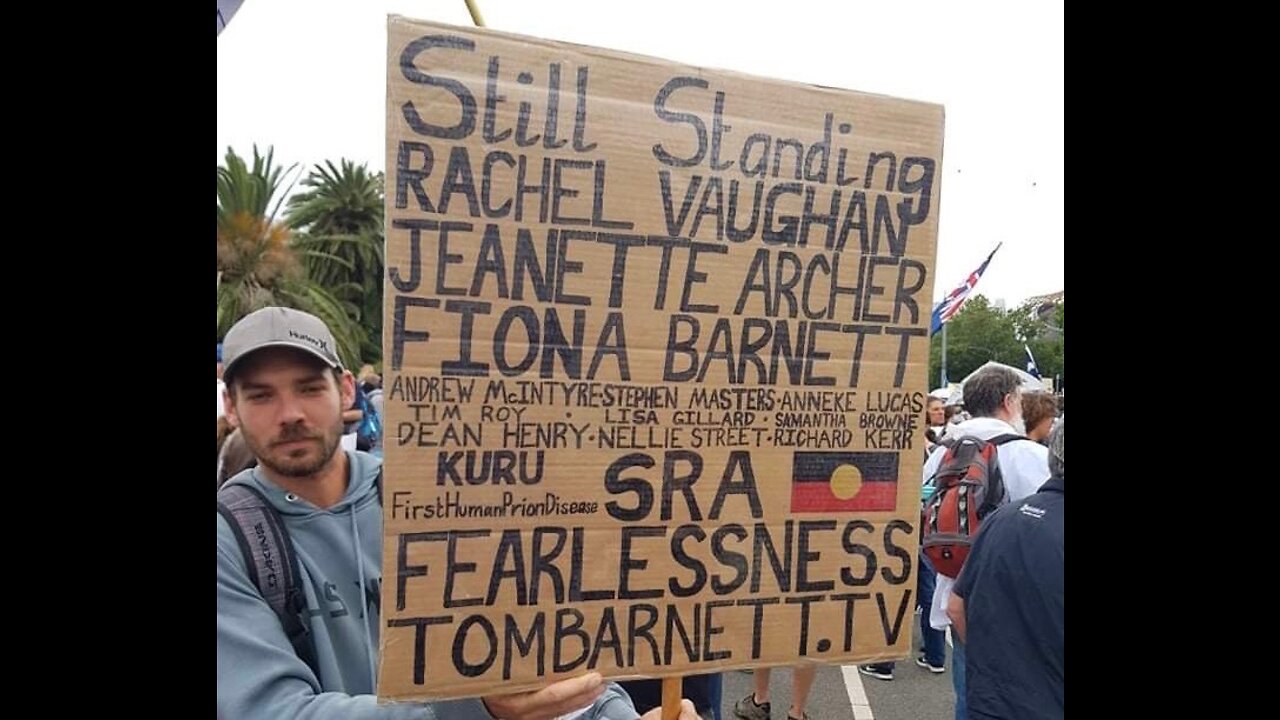 Still Standing
RACHEL VAUGHAN
JEANETTE ARCHER
FIONA BARNETT
ANDREW McINTYRE·STEPHEN MASTERS·ANNEKE LUCAS
TIM ROY · LISA GILLARD · SAMANTHA BROWNE
DEAN HENRY·NELLIE STREET·RICHARD KERR
KURU
FirstHumanPrionDisease
SRA
FEARLESSNESS
TOMBARNETT.TV
Hurley
DAKINE